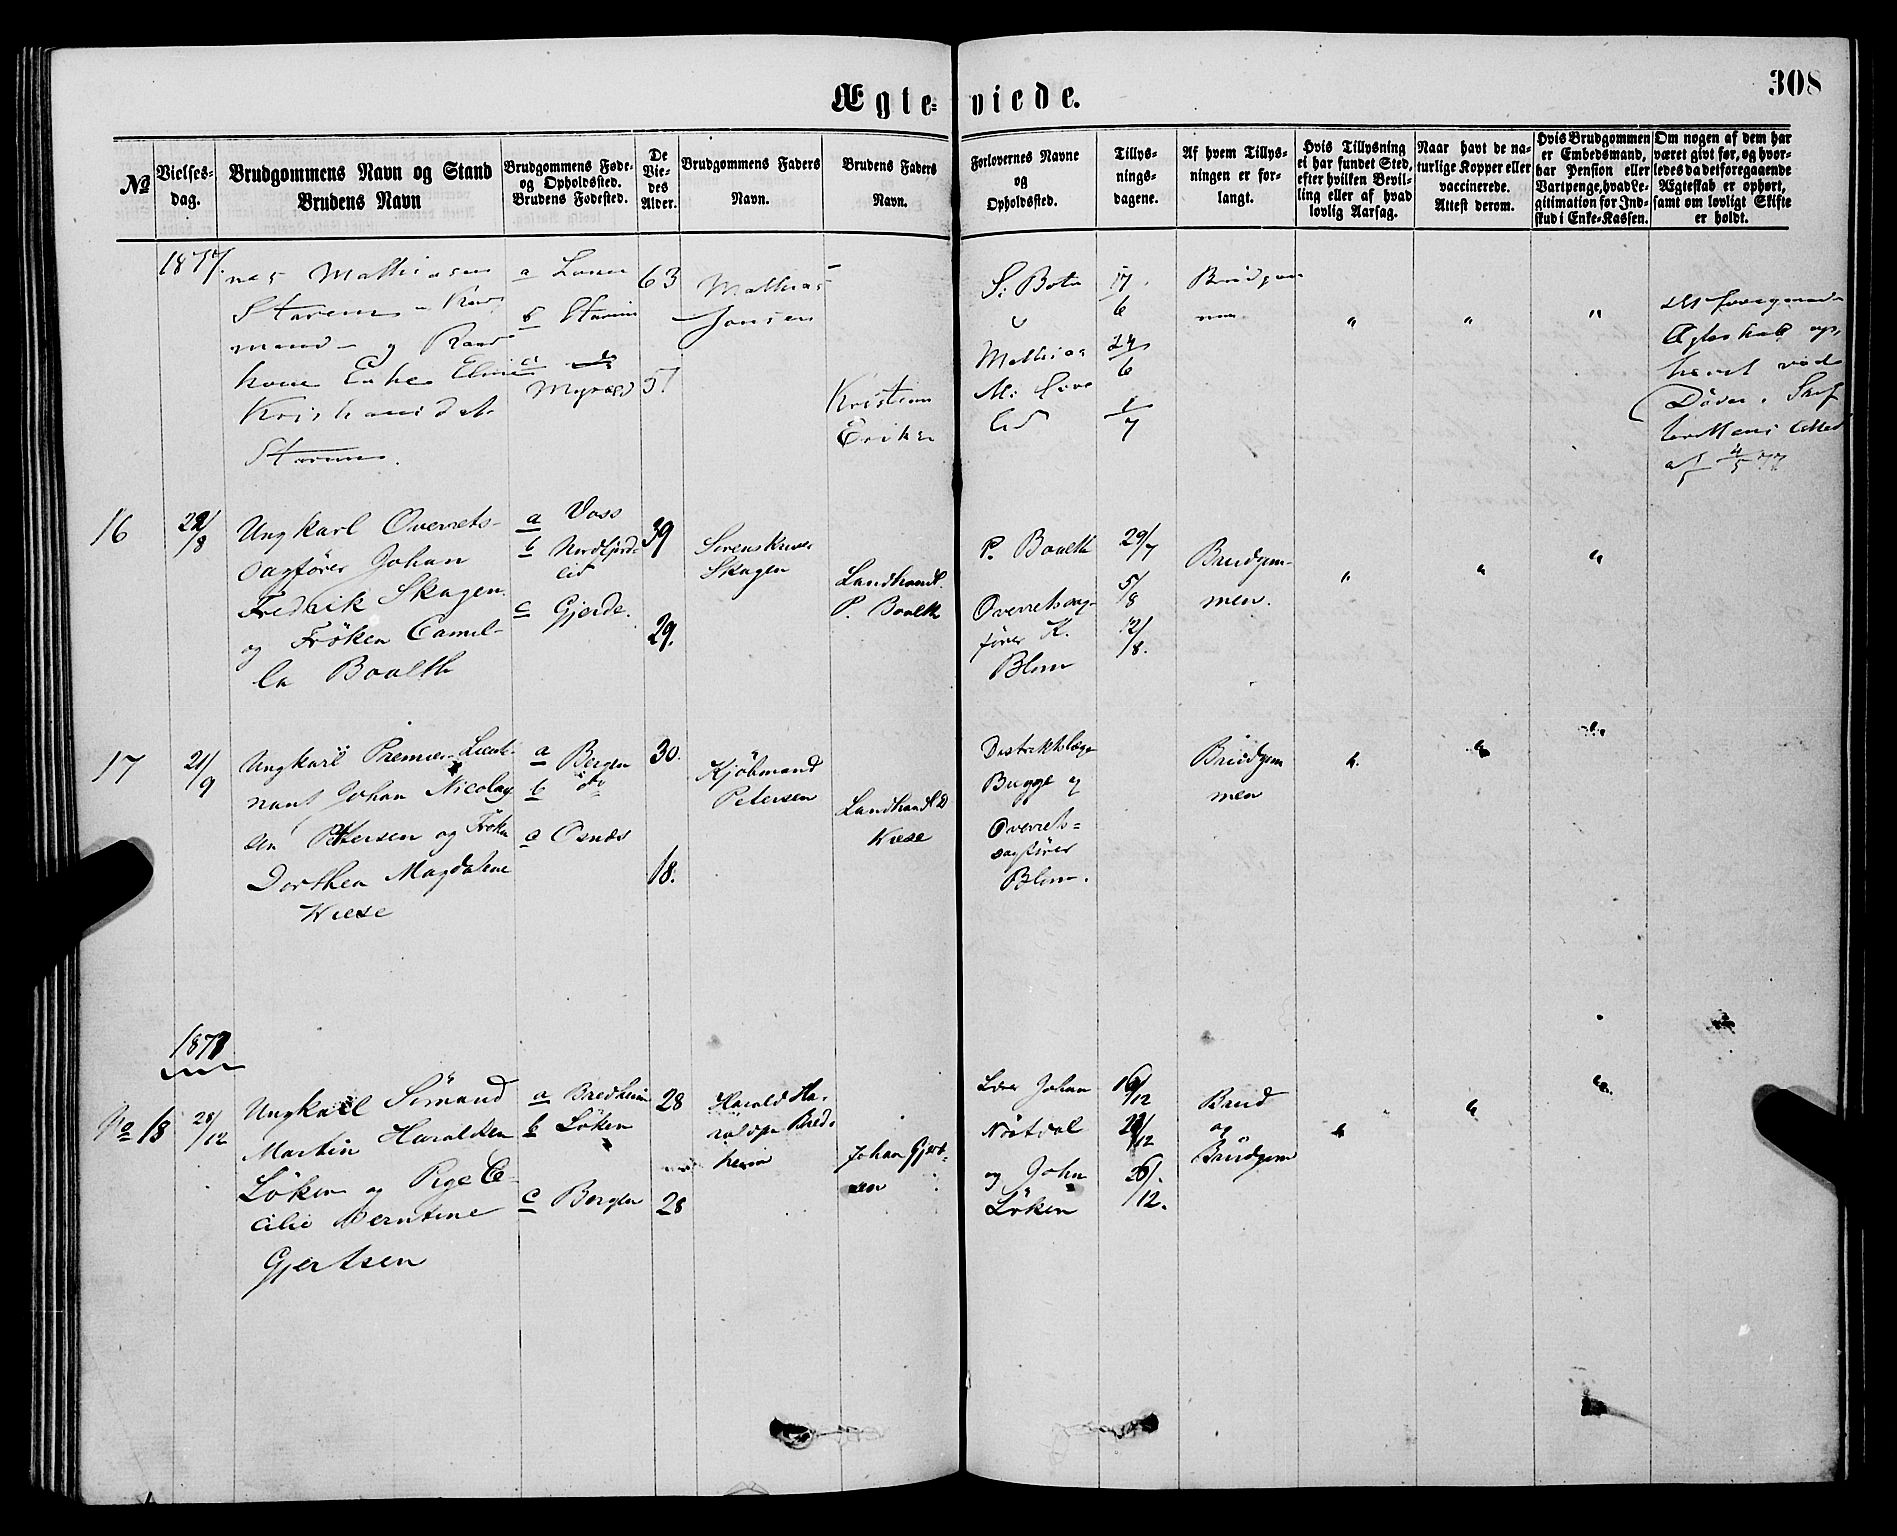 Ægte-viede.
308
No
Vielses-
dag.
Brudgommens Navn og Stand
Brudens Navn
Brudgommens Føde-
og Opholdssted.
Brudens Fødested.
De
Vie-
des
Alder.
Brudgommens Faders
Navn.
Brudens Faders
Navn.
Forlovernes Navne
og
Opholdssted.
Tillys-
nings-
dagene.
Af hvem Tillys-
ningen er for-
langt.
Hvis Tillysning
ei har fundet Sted,
efter hvilken Bevil-
ling eller af hvad
lovlig Aarsag.
Naar havt de na-
turlige Kopper eller
vaccinerede.
Attest derom.
Hvis Brudgommen
er Embedsmand,
har Pension eller
Vartpenge, hvad Le-
gitimation for Ind-
skud i Enke-Kassen.
Om nogen af dem har
været givt før, og hvor-
ledes da det foregaaende
Ægteskab er ophørt,
samt om lovligt Skifte
er holdt.
1877
Mathiasen
mand - og
Kone Enke
a
b
c
63
51
Mathias
Jonsen
Kristen
Mathias
17/6
24/6
1/7
"
"
"
af 4/5 77
16
Ungkarl Overrets-
sagfører Johan
Fredrik Skagen
og Frøken Camil-
la Baalth
a Voss
b Nordfjord-
eid
c Gjerde.
39
29.
Sorenskriver
Skagen
Landhandl.
P. Baalth
P. Baalth
Overretssag-
fører K.
Blom
29/7
5/8
12/8.
Brudgom-
men.
"
"
"
17
21/9
Ungkarl Premier Lieute-
nant Johan Nicolay-
sen Petersen og Frøken
Dorthea Magdalene
Wiese
a Bergen
b do
c Osnes
30.
18.
Kjöbmand
Petersen
Landhandl
Wiese
Distriktslæge
Bugge og
Overrets-
sagfører
Blom.
Brudgom
men
"
"
"
No 18
28/12
Ungkarl Simand
Martin Haraldsen
Löken og Pige Ce-
cilie Berntine
Gjertsen
a Bredheim
b Löken
c Bergen
28
28
Harald Ha-
Bred-
heim
Johan Gjert-
sen
Johan
Nöstdal
og John
Löken
16/12
26/12.
Brud
og
Brudgom
"
"
"